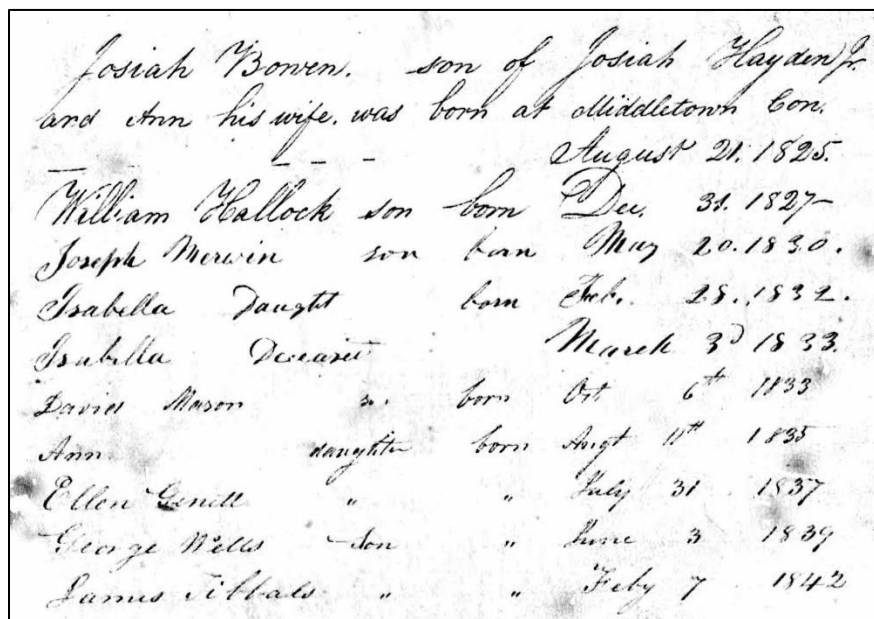 Josiah Bowen. son of Josiah Hayden Jr.
and Ann his wife. was born at Middletown Con.
August 21. 1825.
William Hallock son born Dec. 31. 1827
Joseph Merwin son born May 20. 1830.
Isabella Daught born Feb. 28. 1832.
Isabella Deceased March 3d 1833.
David Mason born Oct 6th 1833
Ann daughter born Augt 11th 1835
Ellen " " July 31 1837
George Wells son " June 3 1839
James Tibbals " " Feby 7 1842